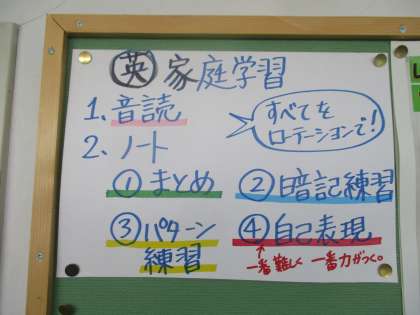 英 家庭学習
1. 音読
すべてを
ローテーションで!
2. ノート
① まとめ
② 暗記練習
③ パターン
練習
④ 自己表現
↑
一番難しく 一番力がつく。